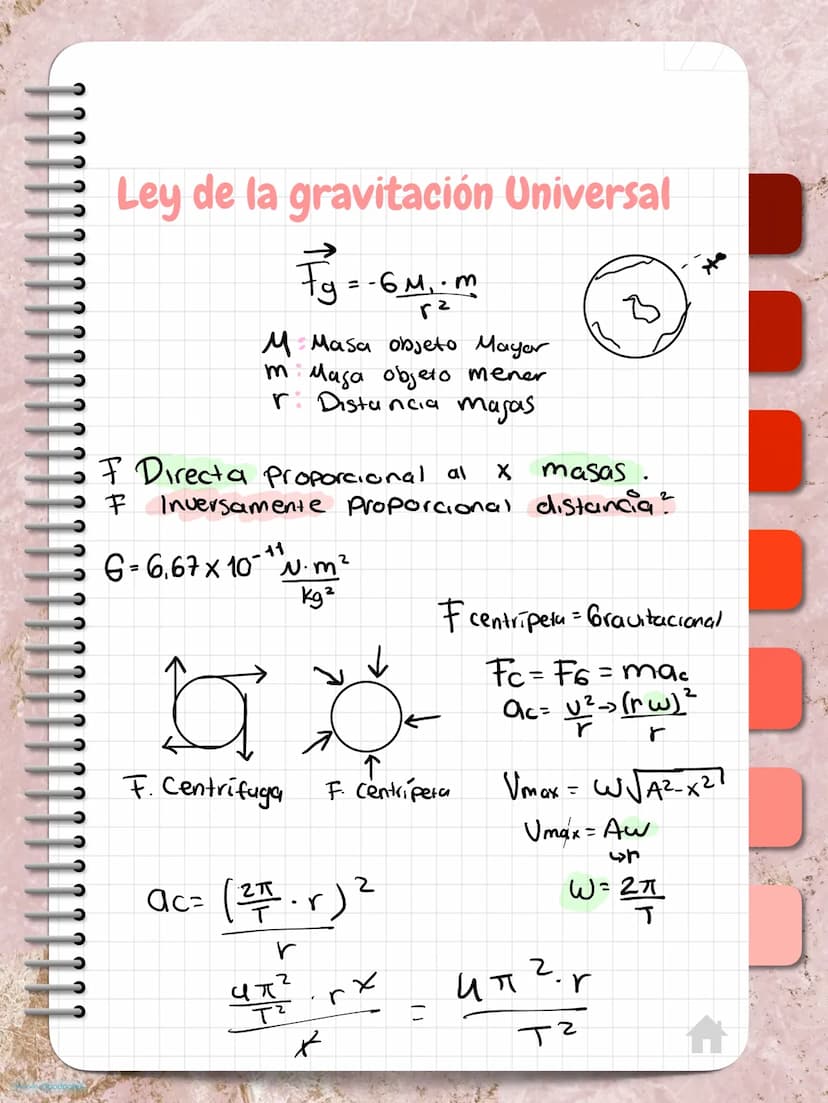 Ley de la gravitación Universal
Fg = -G M₁ · m / r²
M: Masa objeto Mayor
m: Masa objeto menor
r: Distancia masas
F Directa proporcional al x masas.
F Inversamente proporcional distancia²
G = 6,67 x 10⁻¹¹ N·m² / kg²
F centrípeta = Gravitacional
Fc = FG = mac
ac = v²/r → (rw)²/r
F. Centrífuga
F. Centrípeta
Vmax = w√A²-x²
Vmáx = Aw
↳r
w = 2π/T
ac = (2π/T · r)² / r
4π²/T² · r² / r = 4π² · r / T²